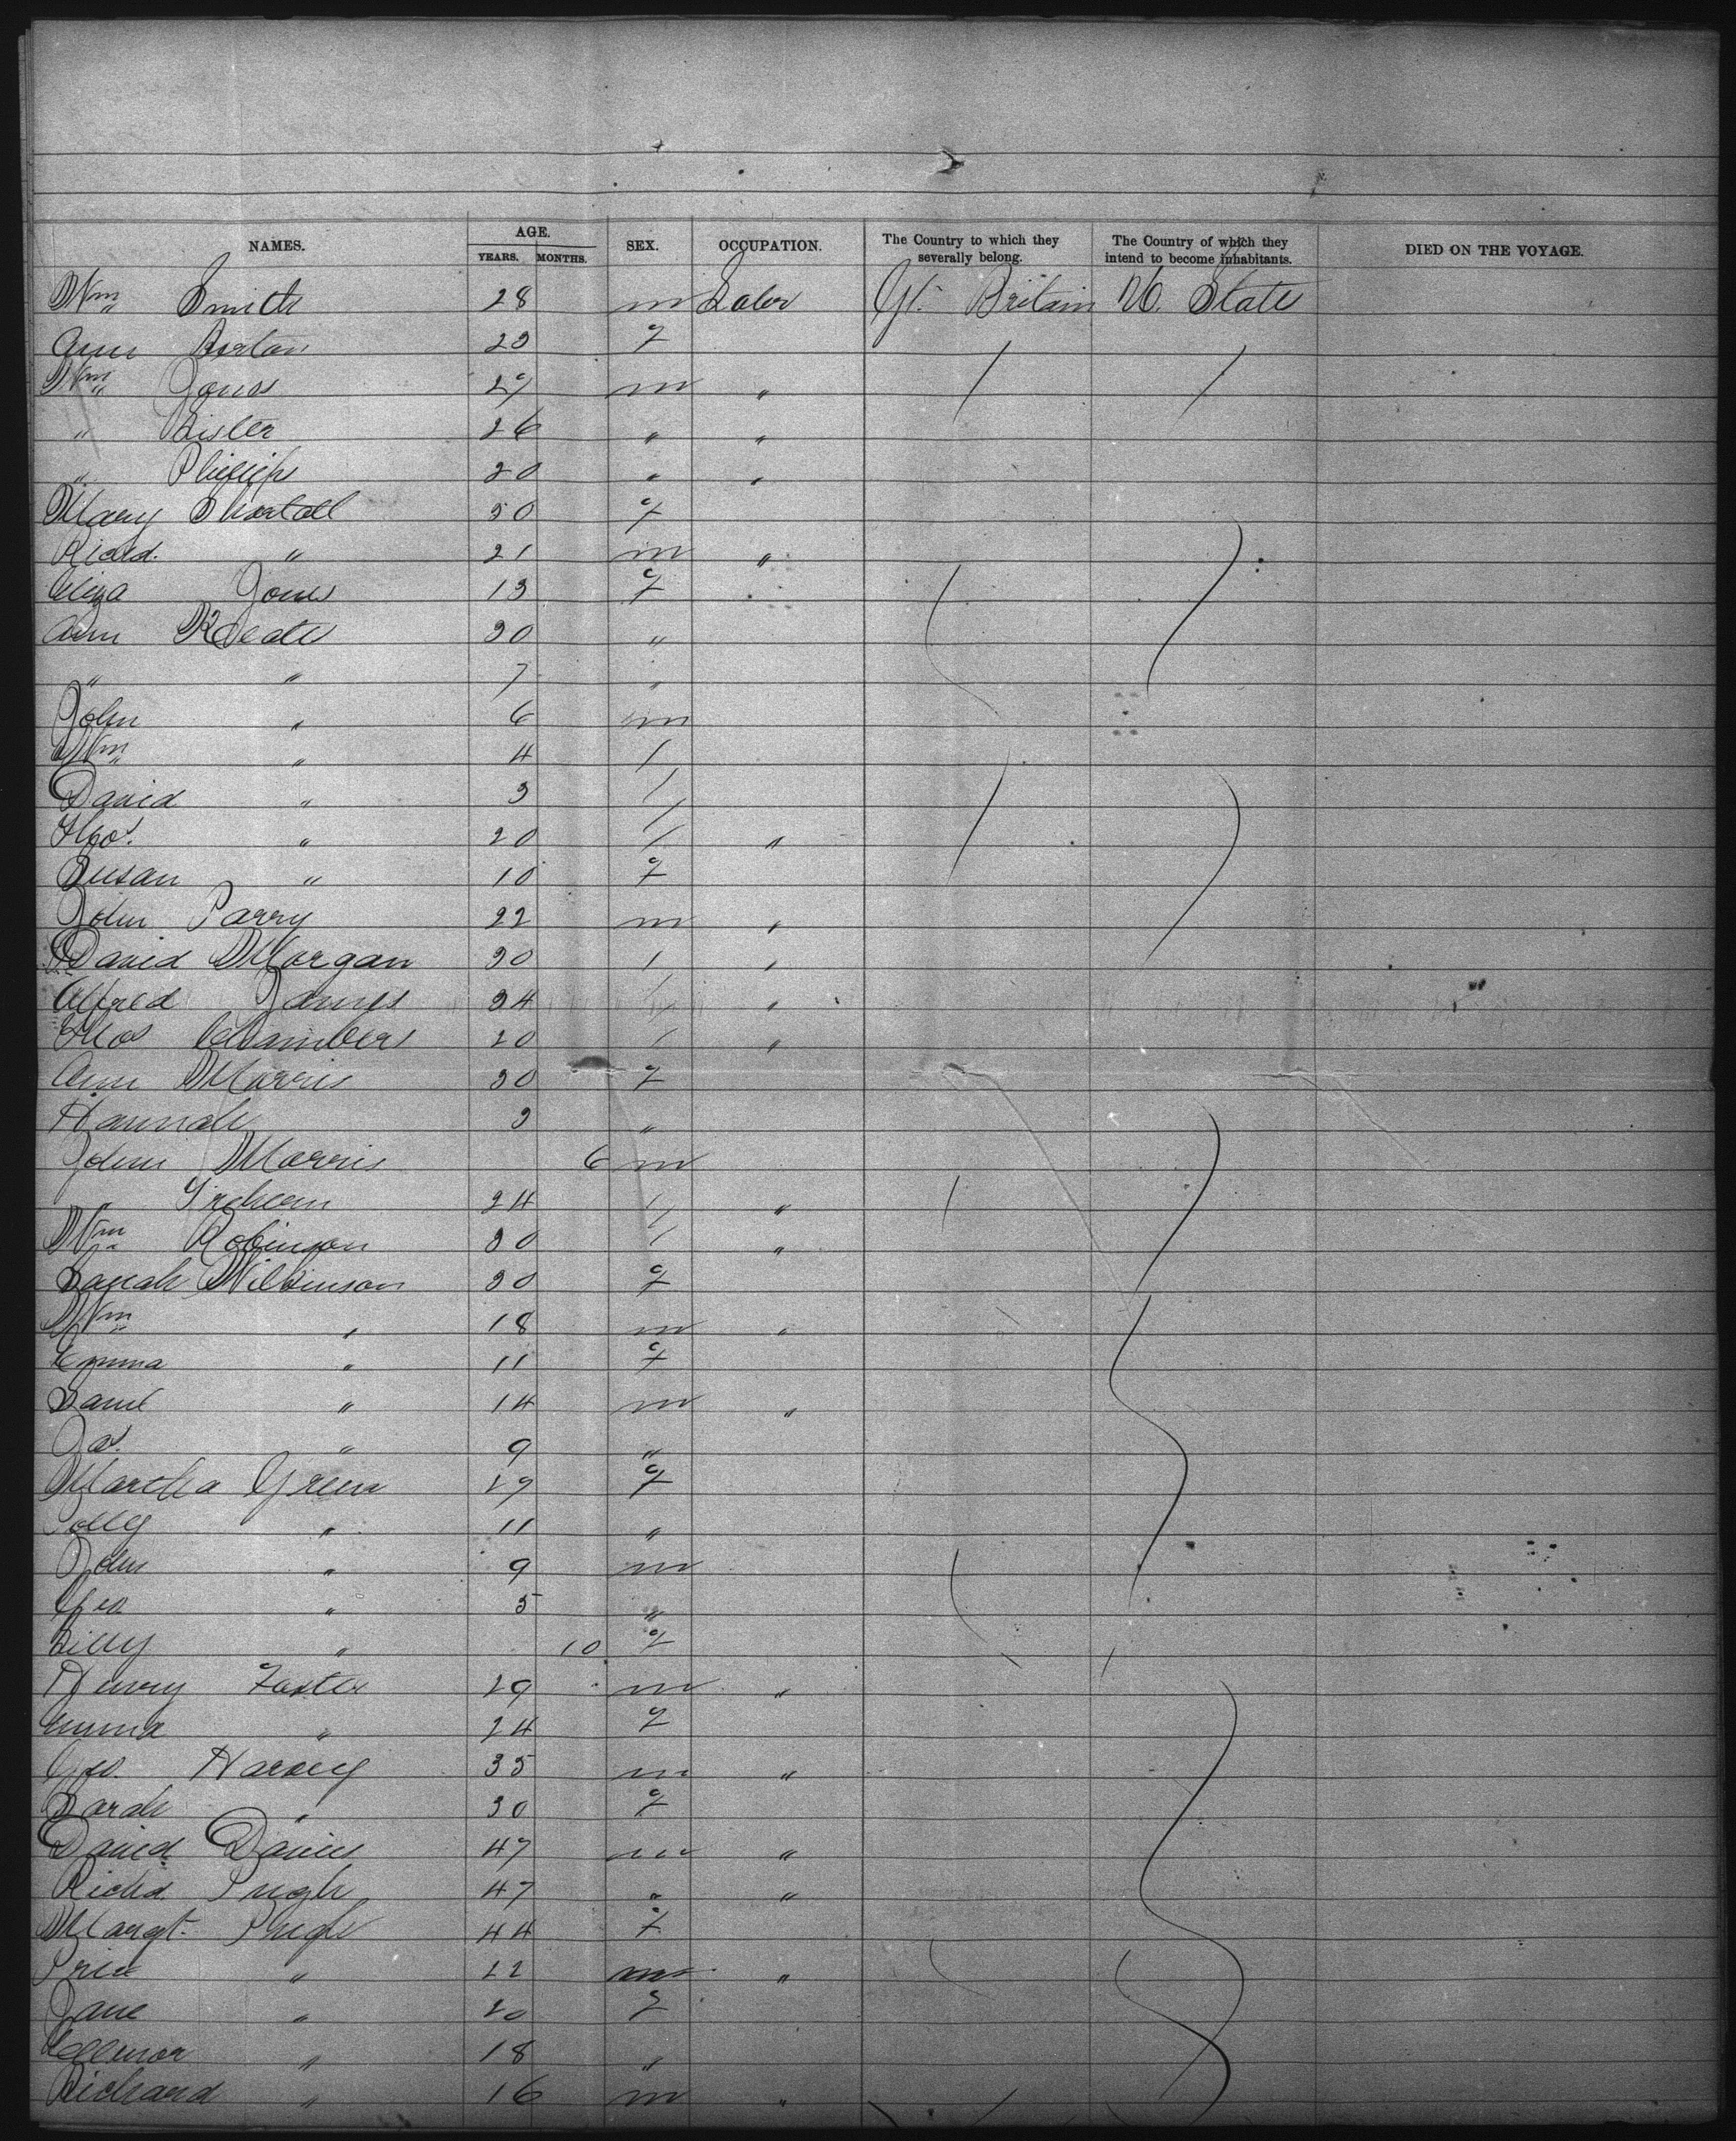 NAMES. AGE. YEARS. MONTHS. SEX. OCCUPATION. The Country to which they severally belong. The Country of which they intend to become inhabitants. DIED ON THE VOYAGE.
Wm Smith 28 m Labr Gt. Britain U. State
Ann 23 f
Wm Jones 29 m "
" Lister 26 " "
" Phillips 20 " "
Mary Shortall 50 f
Richd. " 21 m "
Eliza Jones 13 f
Ann 30 "
" " 7 "
John " 6 m
Wm " 4
David " 3
Thos. " 20 "
Susan " 10 f
John Parry 22 m "
David Morgan 30 "
Alfred James 34 "
Thos Chambers 20 "
Ann Morris 30 f
Hannah 3 "
John Morris 6 m
" Treharn 24 "
Wm Robinson 30 "
Sarah Wilkinson 30 f
Wm " 18 m "
Emma " 11 f
Saml " 14 m "
Jas. " 9 "
Martha Green 29 f
Polly " 11 "
John " 9 m
Geo " 5 "
Lilly " 10 f
Henry Foster 29 m "
Emma " 24 f
Geo. Harvey 35 m "
Sarah " 30 f
David Davies 47 m "
Richd Pugh 47 " "
Margt. Pugh 44 f
Price " 22 m "
Jane " 20 f
Ellenor " 18 "
Richard " 16 m "